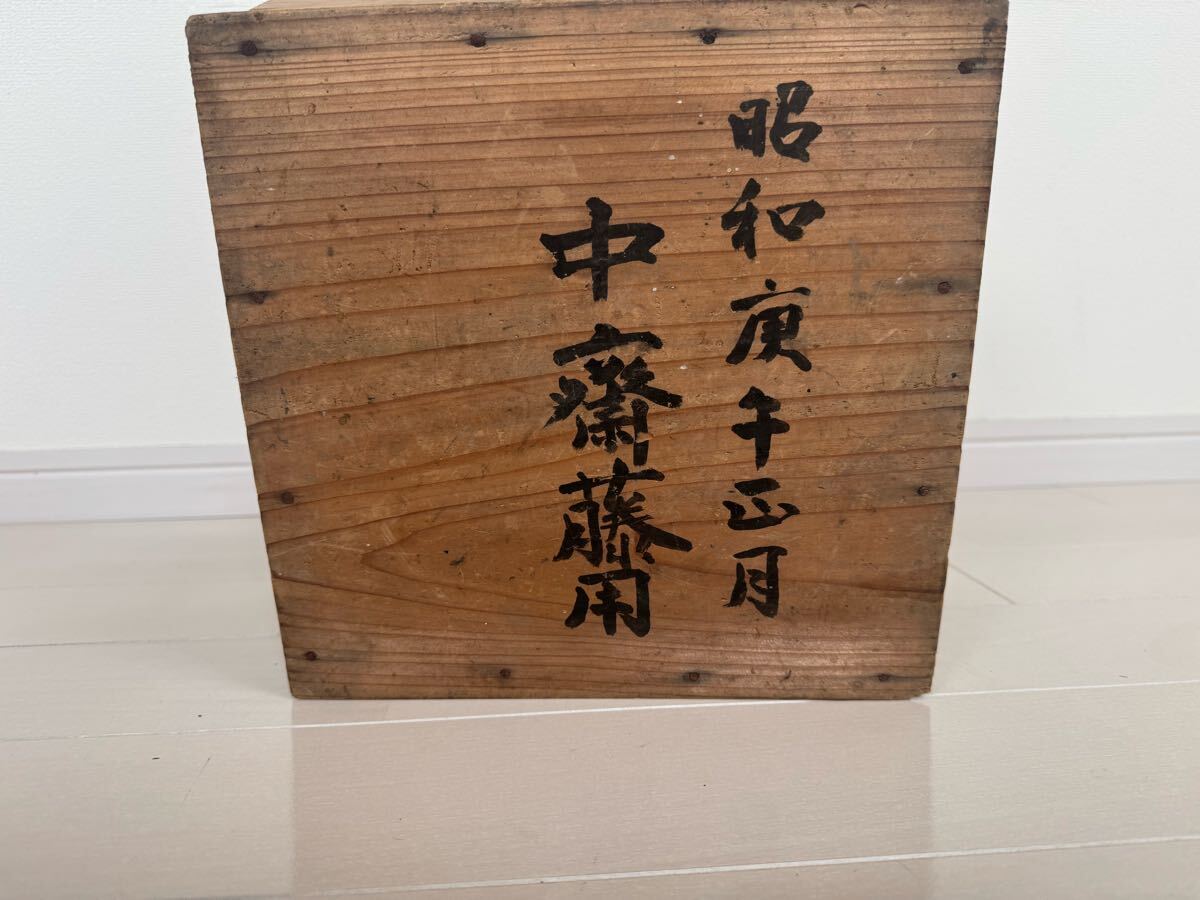 昭和庚午正月
中齋藤用